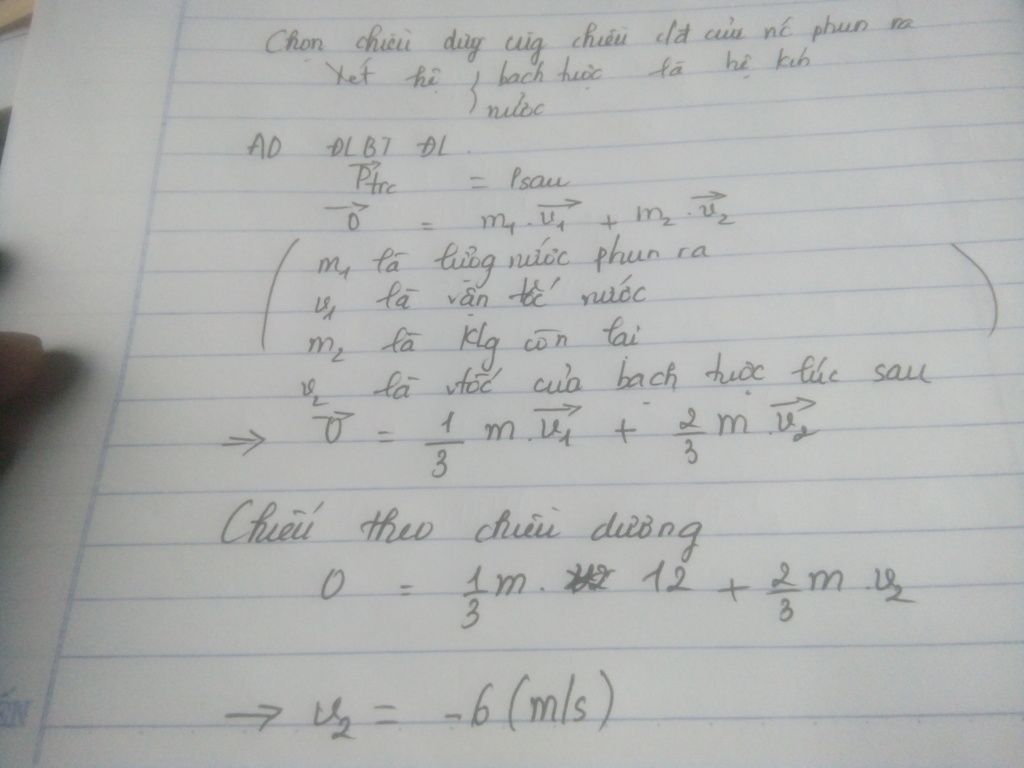 Chọn chiều dươg cùg chiều c/đ của nc phun ra
Xét hệ { bạch tuộc là hệ kín
nước
AD ĐLBT ĐL.
Ptrc = Psau
0 = m1.v1 + m2.v2
m1 là lượg nước phun ra
v1 là vận tốc nước
m2 là klg còn lại
v2 là vtốc của bạch tuộc lúc sau
=> 0 = 1/3 m.v1 + 2/3 m.v2
Chiếu theo chiều dương
0 = 1/3 m. 12 + 2/3 m.v2
→ v2 = -6 (m/s)